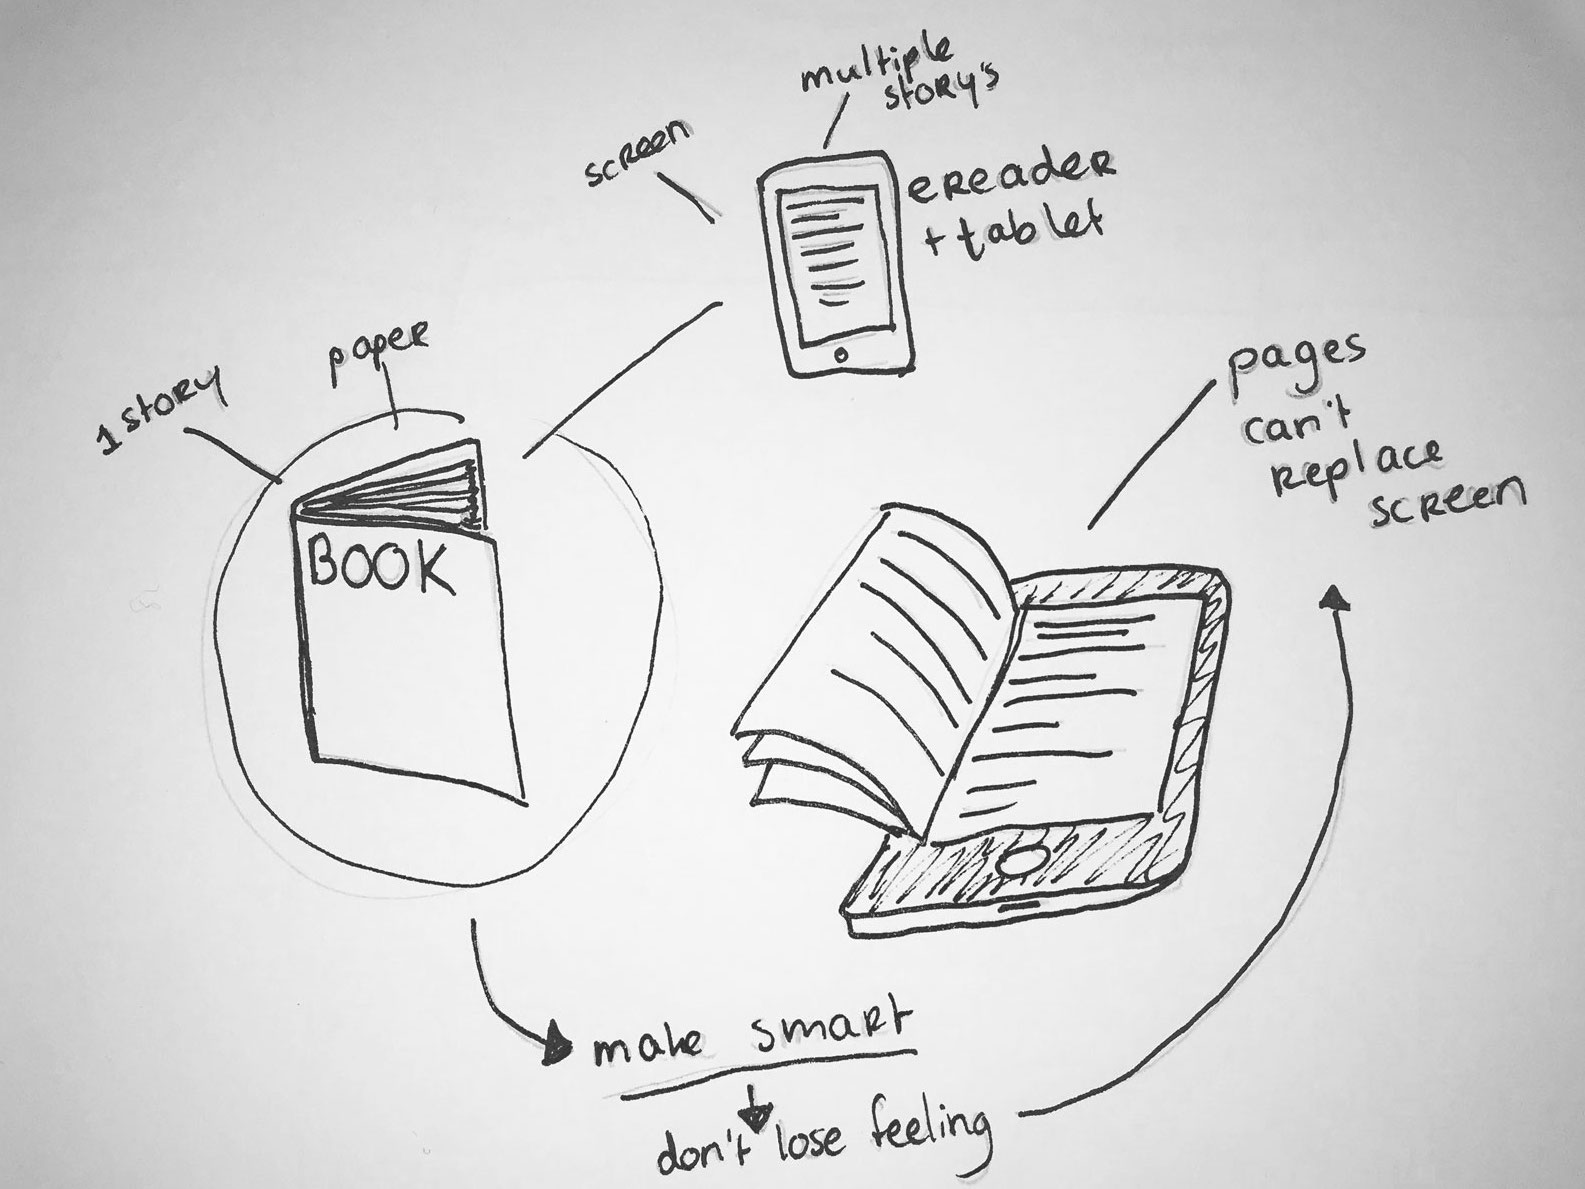 multiple
story's
screen
ereader
+ tablet
paper
1 story
BOOK
pages
can't
replace
screen
make smart
don't lose feeling